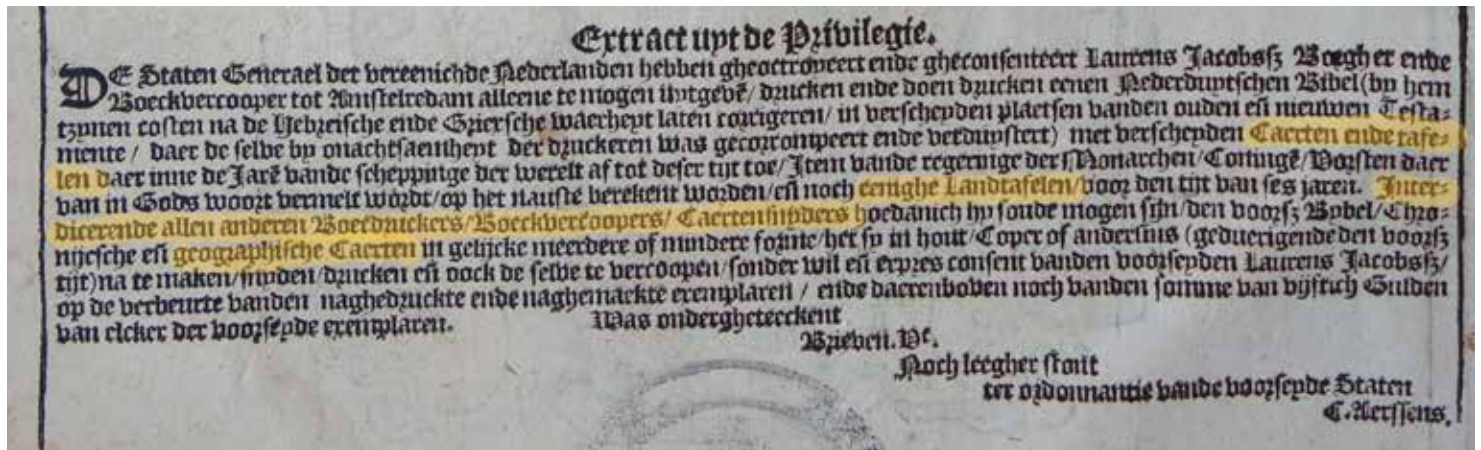 Extract uyt de Privilegie.
DE Staten Generael der vereenichde Nederlanden hebben gheoctroyeert ende gheconsenteert Laurens Jacobsz Boegher ende
Boeckvercooper tot Amstelredam alleene te mogen uytgevē/ drucken ende doen drucken eenen Nederduytschen Bibel (by hem
tzynen costen na de Hebreische ende Griersche waerheyt laten corrigeren/ in verscheyden plaetsen vanden ouden eñ nieuwen Testa-
mente / daer de selve by onachtsaemheyt der druckeren was gecorrompeert ende verduystert) met verscheyden Caerten ende tafe-
len daer inne de Jarē vande scheppinge der werelt af tot deser tijt toe/ Item vande regeringe der Monarchen/ Coningē/ Vorsten daer
van in Gods woort vermelt wordt/ op het nauste berekent worden/ eñ noch eenighe Landtafelen/ voor den tijt van ses jaren. Inter-
dicerende allen anderen Boeckdruckers/ Boeckvercoopers/ Caertensnyders hoedanich hy soude mogen sijn/ den voorsz Bybel/ Chro-
nijcsche eñ geographische Caerten in gelijcke meerdere of mindere forme/ het sy in hout/ Coper of andersins (geduerigende den voorsz
tijt) na te maken/ snyden/ drucken eñ oock de selve te vercoopen/ sonder wil eñ expres consent vanden voorseyden Laurens Jacobsz/
op de verbeurte vanden naghedruckte ende naghemaeckte exemplaren / ende daerenboven noch vanden somme van vijftich Gulden
van elcker der voorseyde exemplaren. Was ondergheteeckent
Brieven. Vᵗ.
Noch leegher stont
ter ordonnantie vande voorseyde Staten
C. Aerssens.